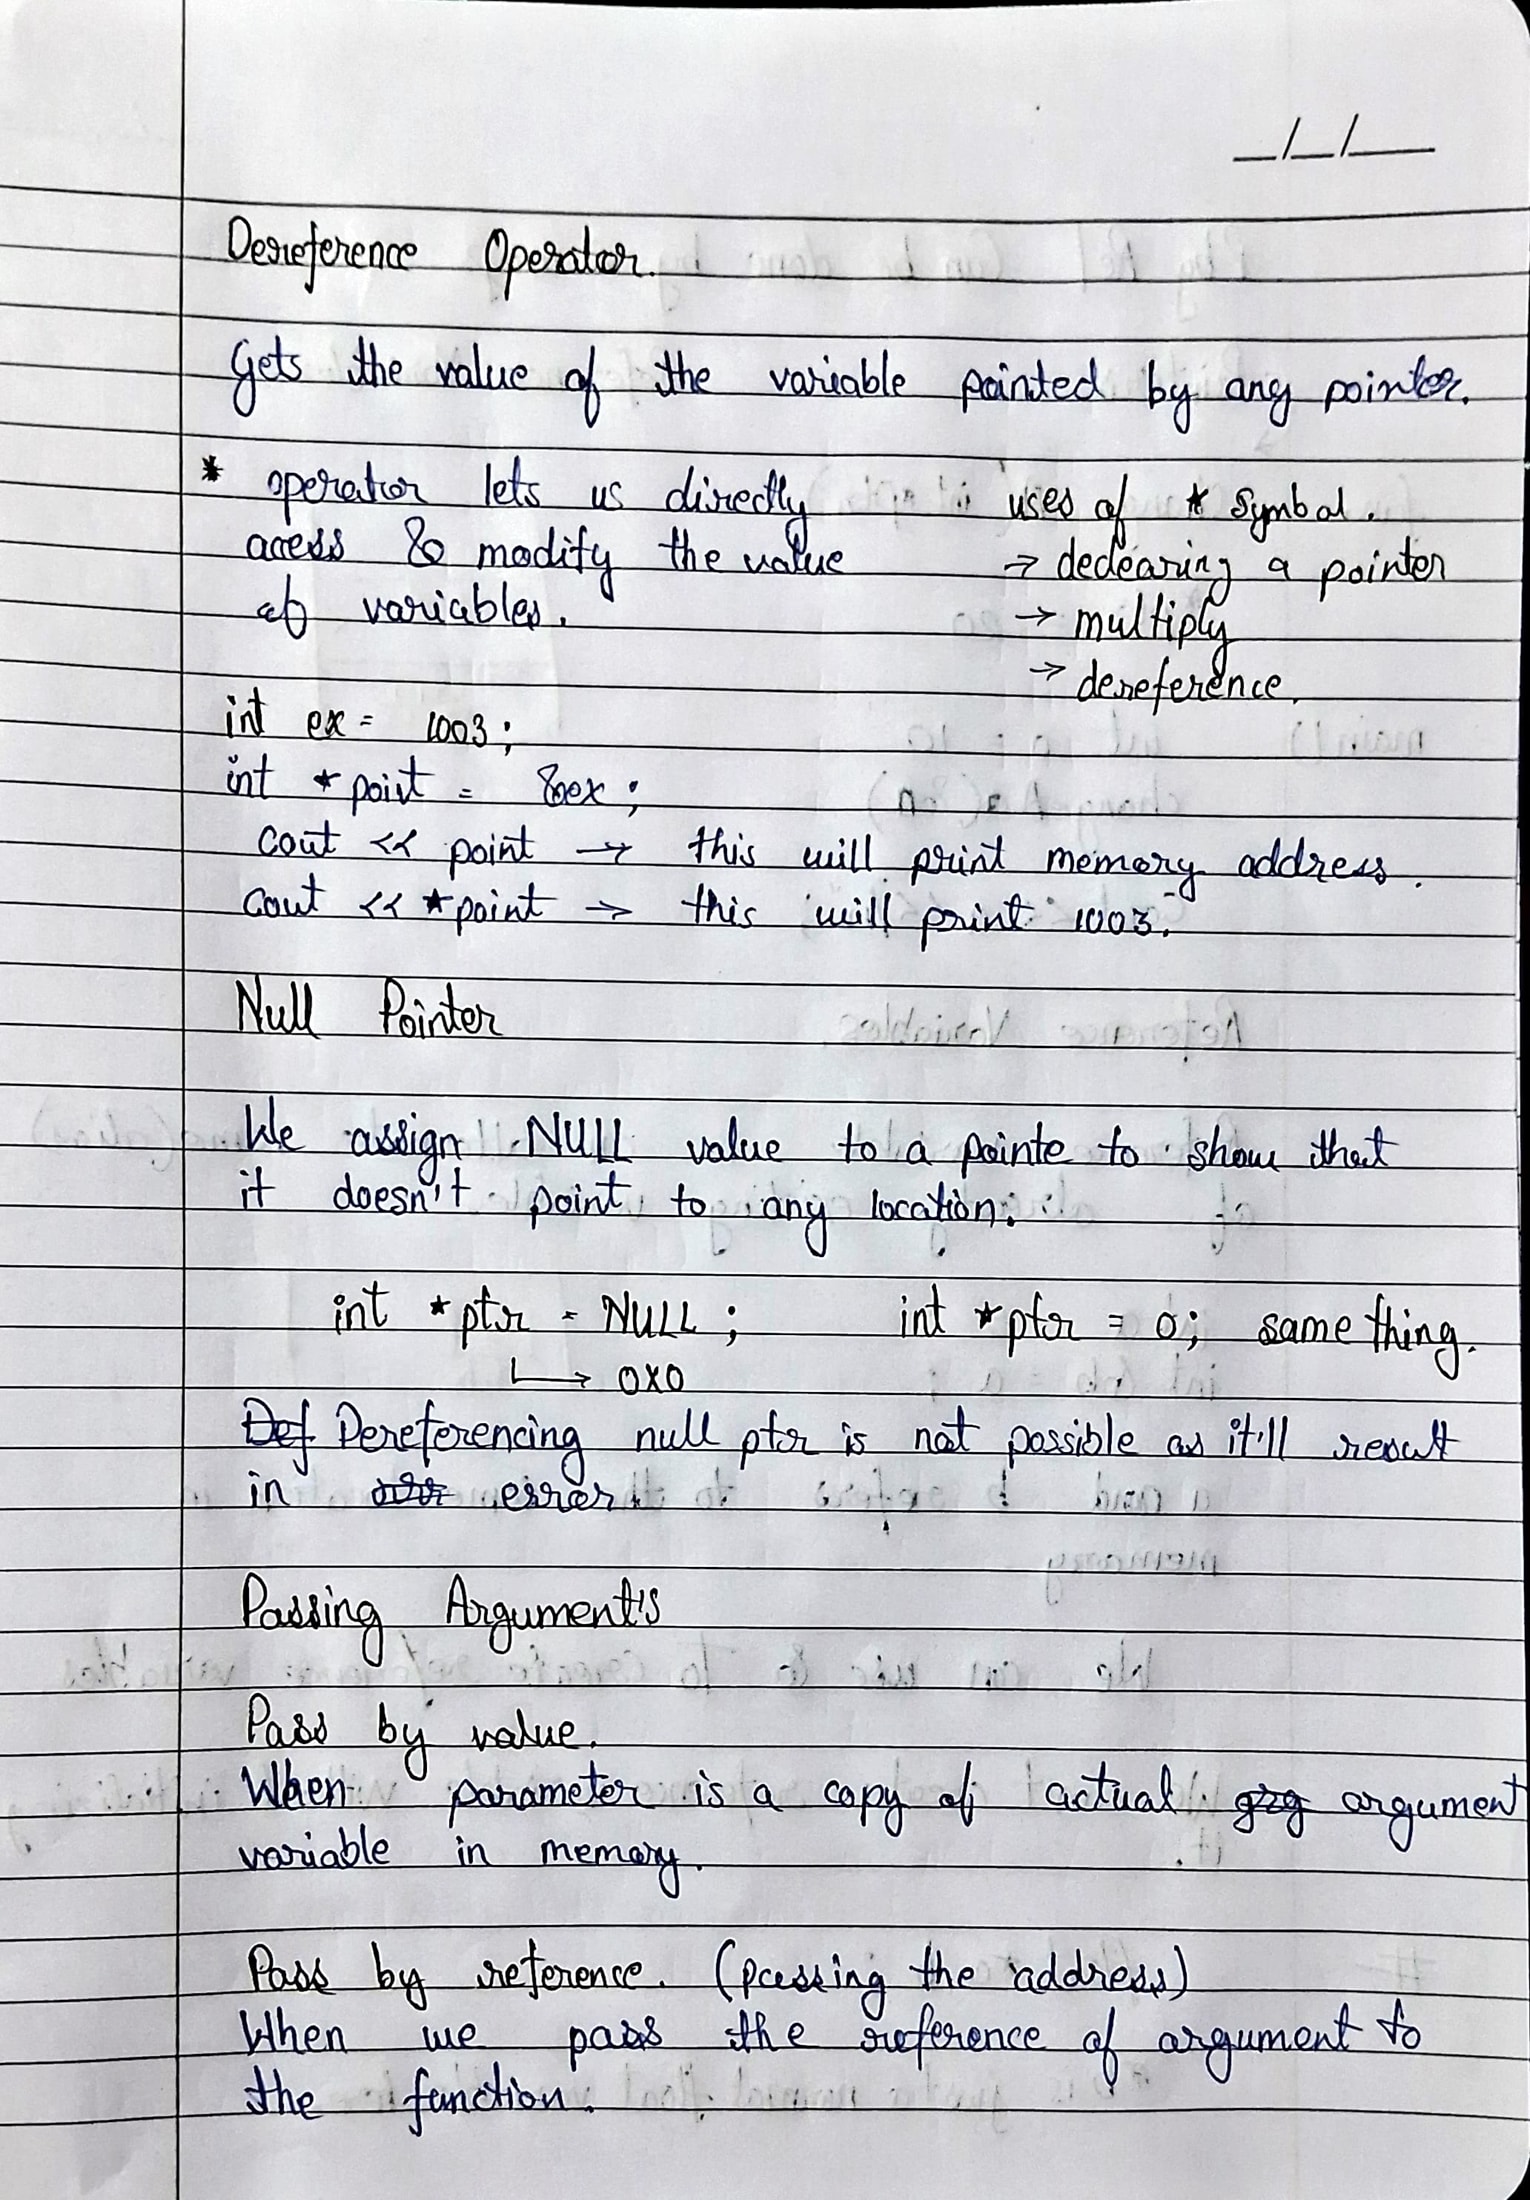 _/_/__
Dereference Operator.
Gets the value of the variable pointed by any pointer.
* operator lets us directly
acess & modify the value
of variables.
uses of * symbol.
→ declearing a pointer
→ multiply
→ dereference.
int ex = 1003;
int *poit = &ex;
cout << point → this will print memory address.
cout << *point → this will print 1003.
Null Pointer
We assign NULL value to a pointe to show that
it doesn't point to any location.
int *ptr = NULL; int *ptr = 0; same thing.
↳ 0x0
Def Dereferencing null ptr is not possible as it'll result
in error.
Passing Argument's
Pass by value.
When parameter is a copy of actual arg argument
variable in memory.
Pass by reference. (passing the address)
When we pass the reference of argument to
the function.